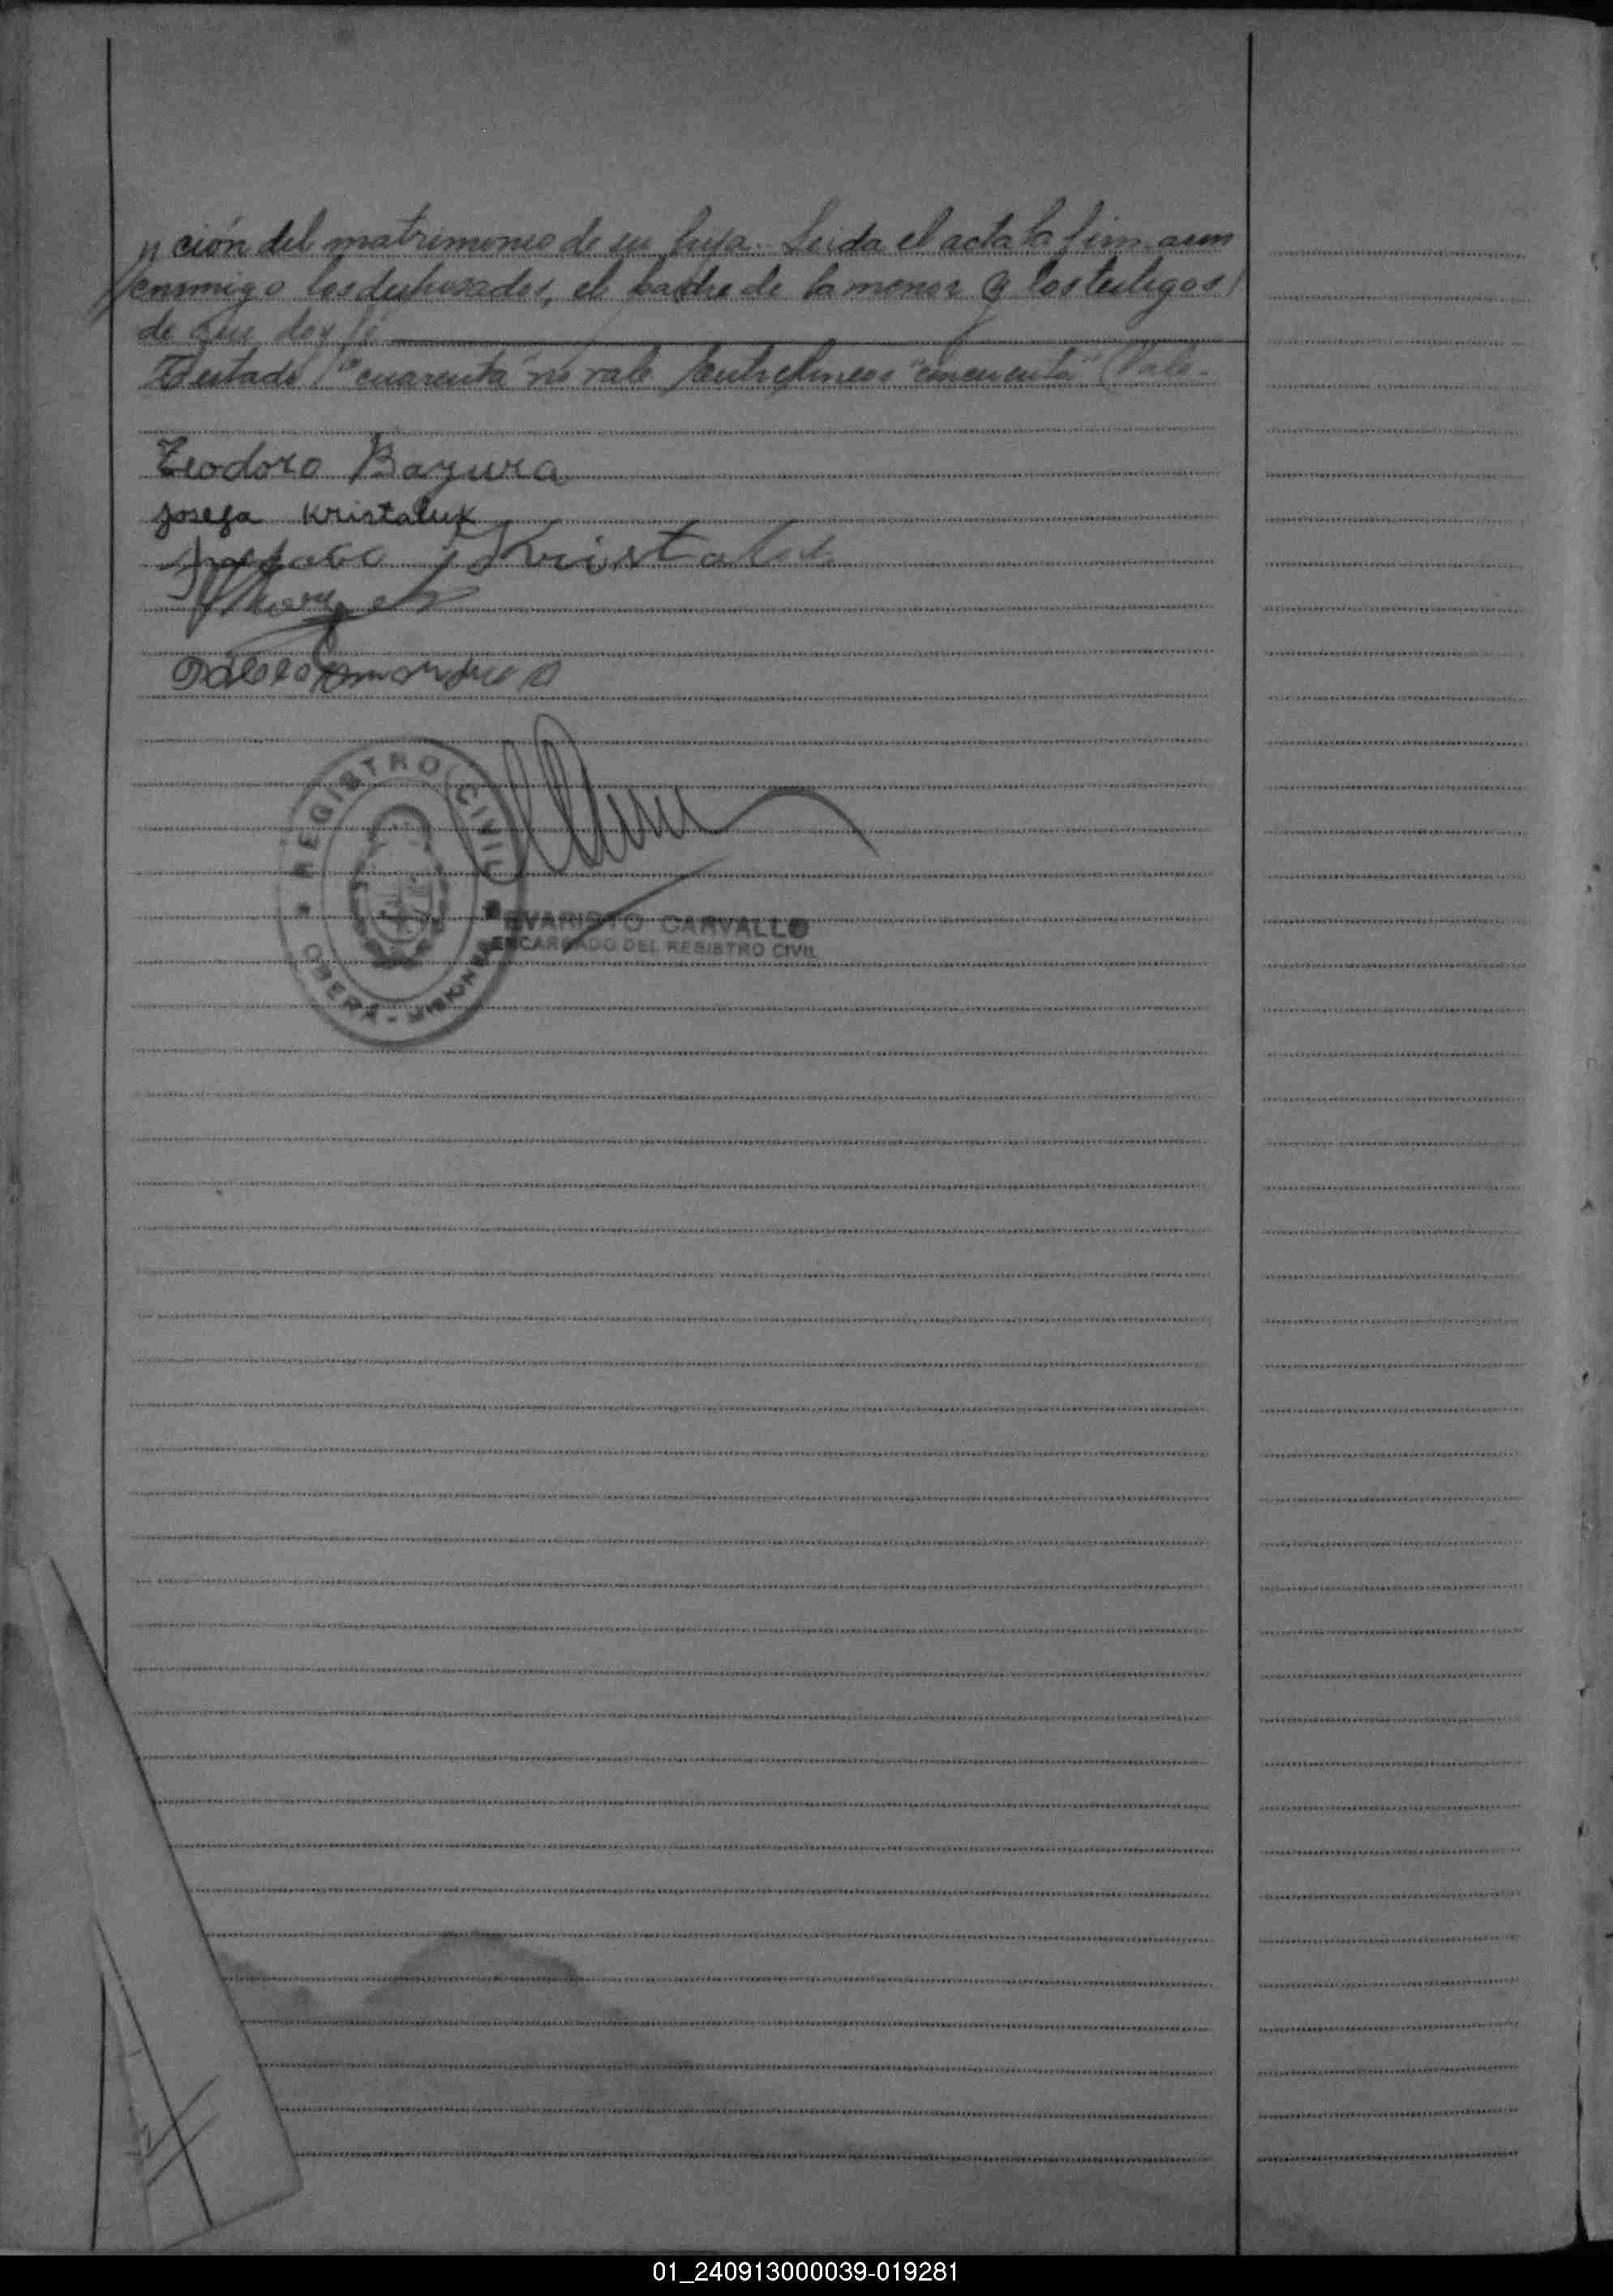 " ción del matrimonio de su hija. Leida el acta la firmaron
conmigo los desposados, el padre de la menor y los testigos
de que doy fé
Testado "cuarenta" no vale entrelineas "cincuenta" Vale.
Teodoro Bazura
Josefa Kristaluk
Kristaluk
REGISTRO CIVIL
OBERÁ - MISIONES
EVARISTO CARVALLO
ENCARGADO DEL REGISTRO CIVIL
01_240913000039-019281